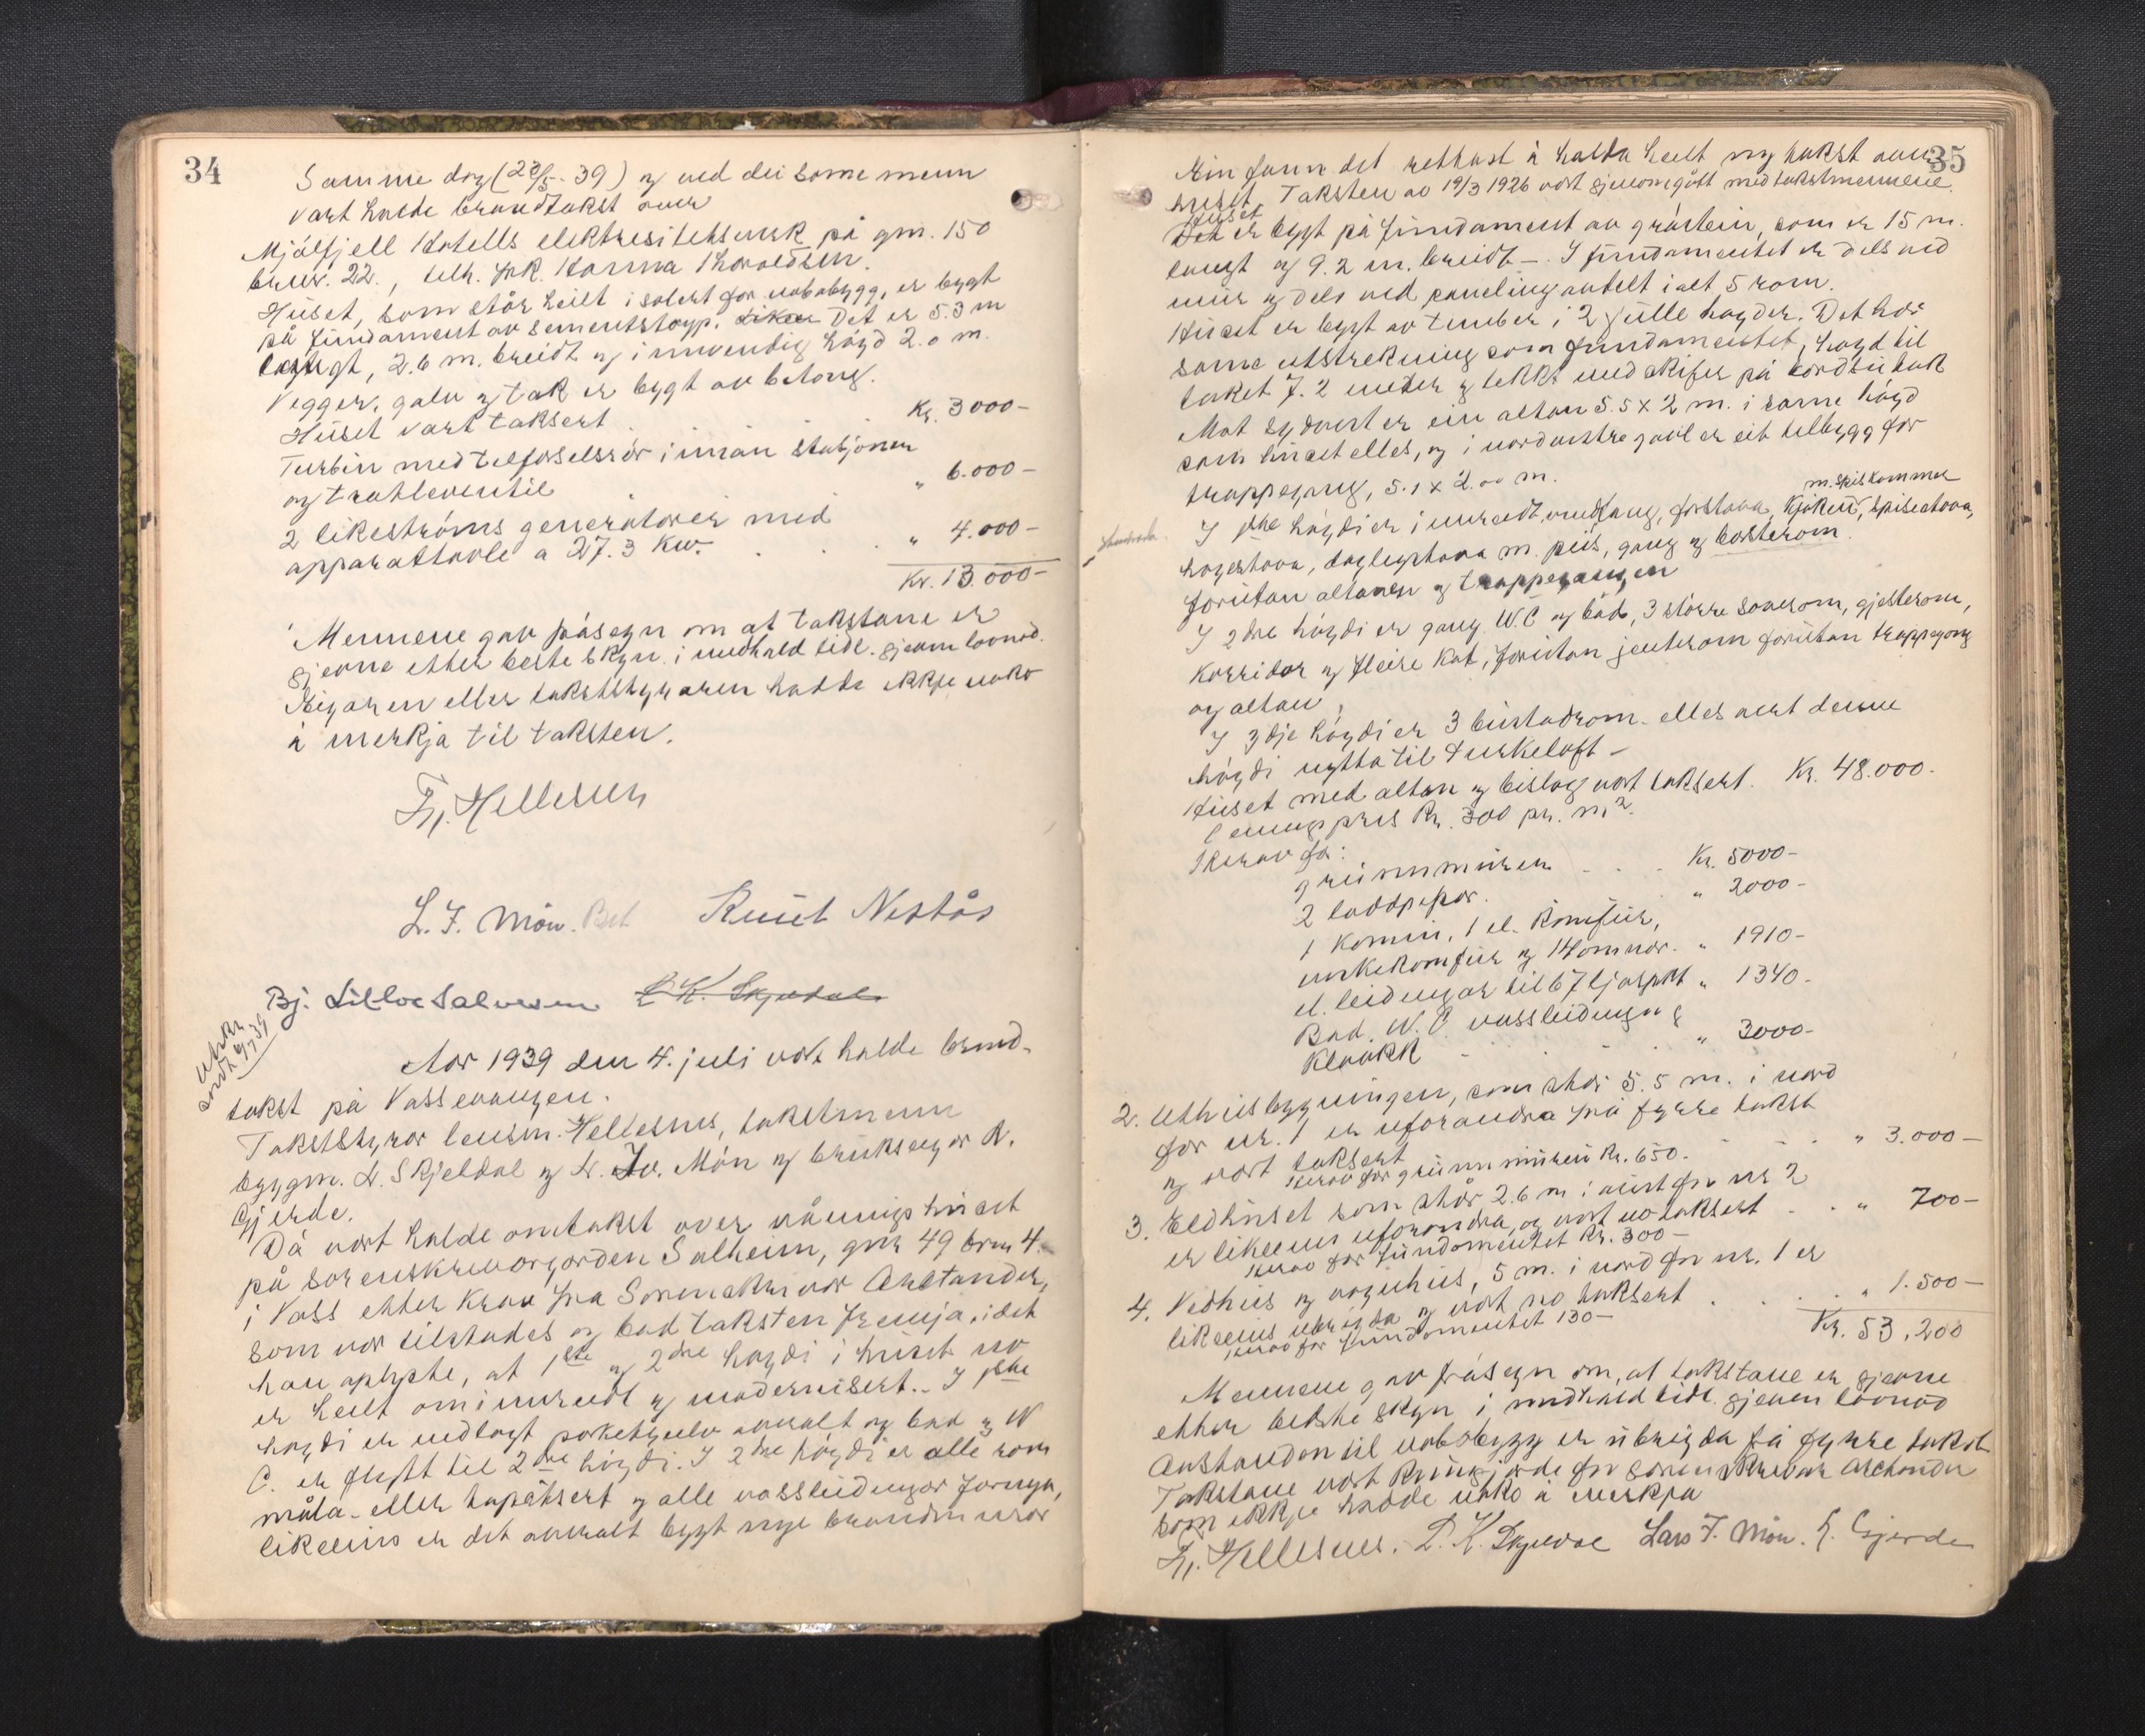 34
Samme dag (23/5-39) og ved dei same menn
vart halde brandtakst over
Mjölfjell Hotells elektresitetsverk på gnr. 150
bruv. 22., tilh. frk. Hanna Haraldsen.
Huset, som står heilt isolert for nabobygg, er bygt
på fundament av sementstøyp. Det er 5.3 m
langt, 2.6 m. breidt og innvendig høgd 2.0 m.
Vegger, golv og tak er bygt av betong.
Huset vart taksert . . Kr. 3000-
Turbin med tilførselsrör innan stasjonen
og trotleventil . " 6.000-
2 likeströms generatorer med
apparattavle a 27.3 Kw. . . . " 4.000-
Kr. 13.000-
Mennene gav fråsegn om at takstane er
gjevne etter beste skyn i medhald tidl. gjeven lovnad.
Eigaren eller takststyraren hadde ikkje noko
å merkja til taksten.
Fr. Hellesnes
L. F. Møn. Knut Nestås
Bj. Lilloe Salvesen L K. Skjeldal
Utskr.
sendt 6/7 39
Aar 1939 den 4. juli vart halde brand-
takst på Vossevangen.
Takststyrar lensm. Hellesnes, takstmenn
byggm. L. Skjeldal og L. Fr. Møn og brukseigar K.
Gjerde.
Då vart halde omtakst over våningshuset
på sorenskrivargarden Solheim, gnr 49 brn 4.
i Voss etter krav frå Sorenskrivar
som var tilstades og bad taksten fremja, idet
han oplyste, at 1ste og 2dre høgdi i huset no
er heilt ominnreidt og modernisert. I 1ste
høgdi er nedlagt parketgolv overalt og bad og W
C. er flytt til 2dre høgdi. I 2dre högdi er alle rom
måla eller tapetsert og alle vassleidningar fornya,
likeeins er det overalt bygt nye brandmurar
35
Ein fann det rettast å halda heilt ny takst over
huset. Taksten av 19/3 1926 vart gjenomgått med takstmennene.
Huset
Det er bygt på fundament av gråstein, som er 15 m.
langt og 9.2 m. breidt-. I fundamentet er dels ved
mur og dels ved paneling avdelt i alt 5 rom.
Huset er bygt av tømber i 2 fulle høgder. Det har
same utstrekning som fundamentet, høgd til
taket 7.2 meter og tekkt med skifer på bordtak
Mot sydvest er ein altan 5.5 x 2 m. i same högd
som huset elles, og i nordvestre gavl er eit tilbygg for
trappegang, 5.1 x 2.00 m.
m. spiskammer
I 1ste högdi er innreidt vindfang, forstova, kjøken, spisestova,
hagestova, daglegstova m. peis, gang og bosterom
foriutan altanen og trappegangen
I 2dre högdi er gang W.C og bad, 3 större soverom, gjesterom,
korridor og fleire kot, foriutan jenterom foriutan trappegong
og altan.
I 3dje høgdi er 3 bustadrom. elles vert denne
högdi nytta til turkeloft -
Huset med altan og bislag vart taksert. Kr. 48.000.
einings pris Kr. 300 pr. m2.
Herav for:
grunnmuren . . . Kr. 5000-
2 loddpipar. " 2000-
1 komin, 1 el. komfur,
vaskekomfur og 14 omnar. " 1910-
el. leidningar til 67 ljospkt " 1340.
Bad, W. C. vassleidning &
kloakk . . . " 3000-
2. Uthusbygningen, som står 5.5 m. i nord
for nr. 1 er uforandra frå fyrre takst
og vart taksert . . . " 3.000-
Herav for grunnmuren Kr. 650.
3. Eldhuset som står 2.6 m i aust for nr 2
er likeeins uforandra, og vart no taksert . . " 700-
Herav for fundamentet Kr. 300-
4. Vedhus og vognhus, 5 m. i nord for nr. 1 er
likeeins ubrigda og vart no taksert . . . . " 1.500-
Herav for fundamentet 130-
Kr. 53,200
Mennene gav fråsegn om, at takstane er gjevne
etter bedste skyn i medhald tidl. gjeven lovnad
Avstanden til nabobygg er ubrigda frå fyrre takst
Takstane vart kunngjorde for sorenskrivar
som ikkje hadde noko å merkja
Fr. Hellesnes. L. K. Skjeldal Lars F. Møn. K. Gjerde